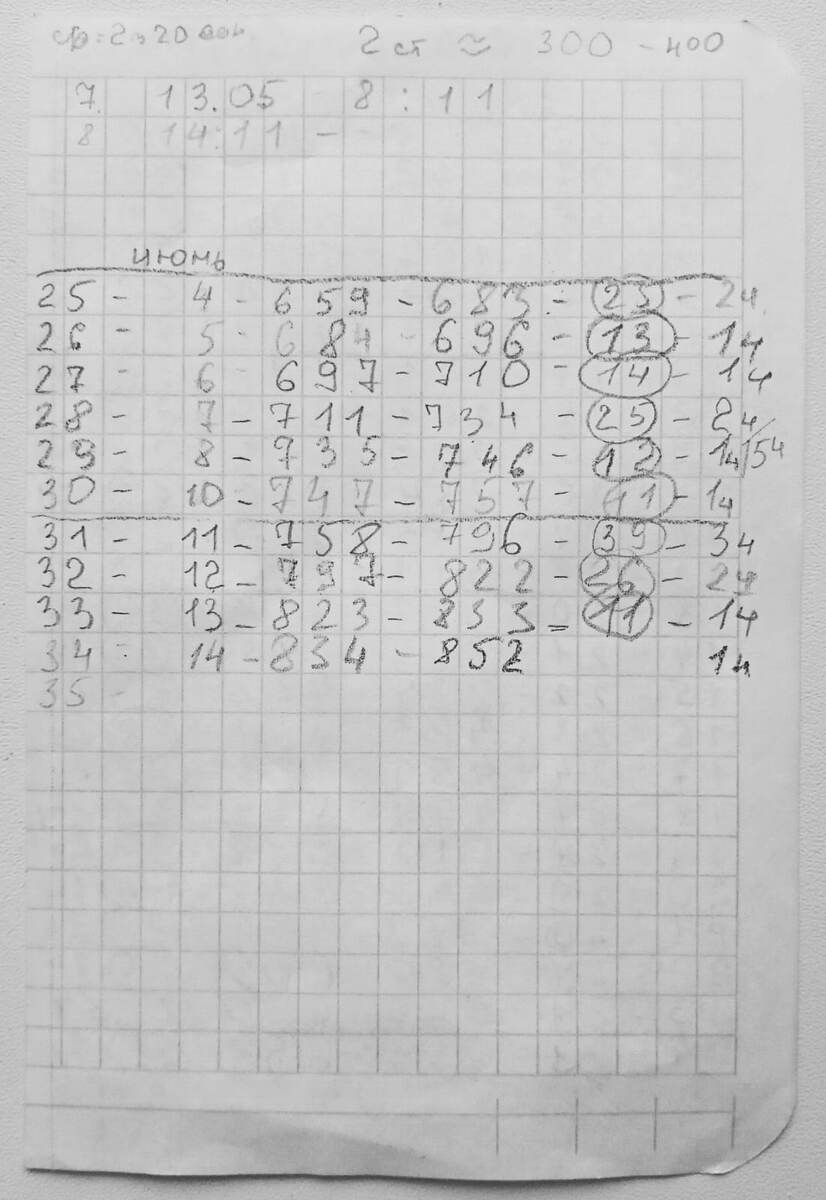 2 ст ≈ 300 - 400
7. 13.05 8:11
8 14:11 -
июнь
25 - 4 - 659 - 683 - 23 - 24
26 - 5 - 684 - 696 - 13 - 14
27 - 6 697 - 710 - 14 - 14
28 - 7 - 711 - 734 - 25 - 24
29 - 8 - 735 - 746 - 12 - 14/54
30 - 10 - 747 - 757 - 11 - 14
31 - 11 - 758 - 796 - 39 - 34
32 - 12 - 797 - 822 - 26 - 24
33 - 13 - 823 - 833 = 11 - 14
34 - 14 - 834 - 852 14
35 -